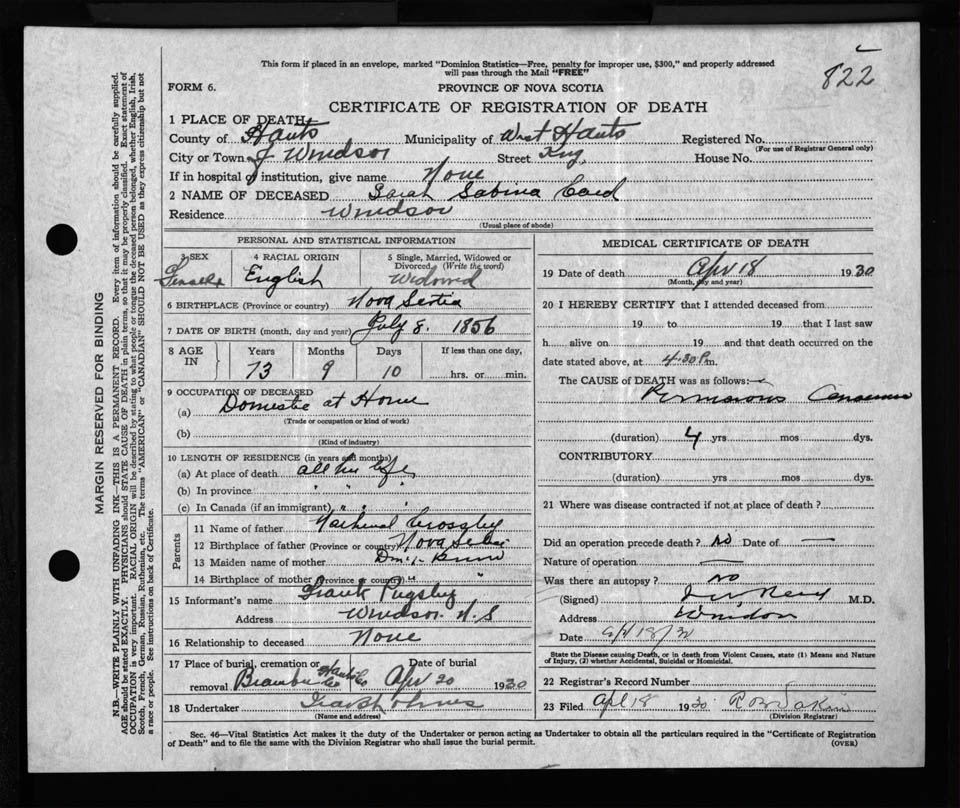 This form if placed in an envelope, marked "Dominion Statistics—Free, penalty for improper use, $300," and properly addressed
will pass through the Mail "FREE"
822
FORM 6.
PROVINCE OF NOVA SCOTIA
CERTIFICATE OF REGISTRATION OF DEATH
1 PLACE OF DEATH
County of Hants Municipality of West Hants Registered No.
(For use of Registrar General only)
City or Town of Windsor Street King House No.
If in hospital or institution, give name None
2 NAME OF DECEASED Sarah Sabina Card
Residence Windsor
(Usual place of abode)
PERSONAL AND STATISTICAL INFORMATION
3 SEX Female
4 RACIAL ORIGIN English
5 Single, Married, Widowed or
Divorced (Write the word)
Widowed
6 BIRTHPLACE (Province or country) Nova Scotia
7 DATE OF BIRTH (month, day and year) July 8. 1856
8 AGE IN
Years Months Days If less than one day,
73 9 10 hrs. or min.
9 OCCUPATION OF DECEASED
(a) Domestic at Home
(Trade or occupation or kind of work)
(b)
(Kind of industry)
10 LENGTH OF RESIDENCE (in years and months)
(a) At place of death all her life
(b) In province " " "
(c) In Canada (if an immigrant) " " "
Parents
11 Name of father Crossley
12 Birthplace of father (Province or country) Nova Scotia
13 Maiden name of mother
14 Birthplace of mother (Province or country) " "
15 Informant's name Frank Pugsley
Address Windsor N.S
16 Relationship to deceased None
17 Place of burial, cremation or Date of burial
removal Hants Co Apr 20 1930
18 Undertaker
(Name and address)
MEDICAL CERTIFICATE OF DEATH
19 Date of death Apr 18 1930
(Month, day and year)
20 I HEREBY CERTIFY that I attended deceased from
19 to 19 that I last saw
h alive on 19 and that death occurred on the
date stated above, at 4.30 P.m.
The CAUSE of DEATH was as follows:
Pernicious Anaemia
(duration) 4 yrs mos dys.
CONTRIBUTORY
(duration) yrs. mos. dys.
21 Where was disease contracted if not at place of death?
Did an operation precede death? No Date of —
Nature of operation —
Was there an autopsy? No
(Signed) M.D.
Address Windsor
Date Apl 18/30
State the Disease causing Death, or in death from Violent Causes, state (1) Means and Nature
of Injury, (2) whether Accidental, Suicidal or Homicidal.
22 Registrar's Record Number
23 Filed Apl 18 1930
(Division Registrar)
Sec. 46—Vital Statistics Act makes it the duty of the Undertaker or person acting as Undertaker to obtain all the particulars required in the "Certificate of Registration
of Death" and to file the same with the Division Registrar who shall issue the burial permit.
(OVER)
MARGIN RESERVED FOR BINDING
N.B.—WRITE PLAINLY WITH UNFADING INK—THIS IS A PERMANENT RECORD. Every item of information should be carefully supplied.
AGE should be stated EXACTLY. PHYSICIANS should STATE CAUSE OF DEATH in plain terms, so that it may be properly classified. Exact statement of
OCCUPATION is very important. RACIAL ORIGIN will be described by stating to what people or tongue the deceased person belonged, whether English, Irish,
Scotch, French, German, Russian, Ruthenian, etc. The terms "AMERICAN" or "CANADIAN" SHOULD NOT BE USED as they express citizenship but not
a race or people. See instructions on back of Certificate.